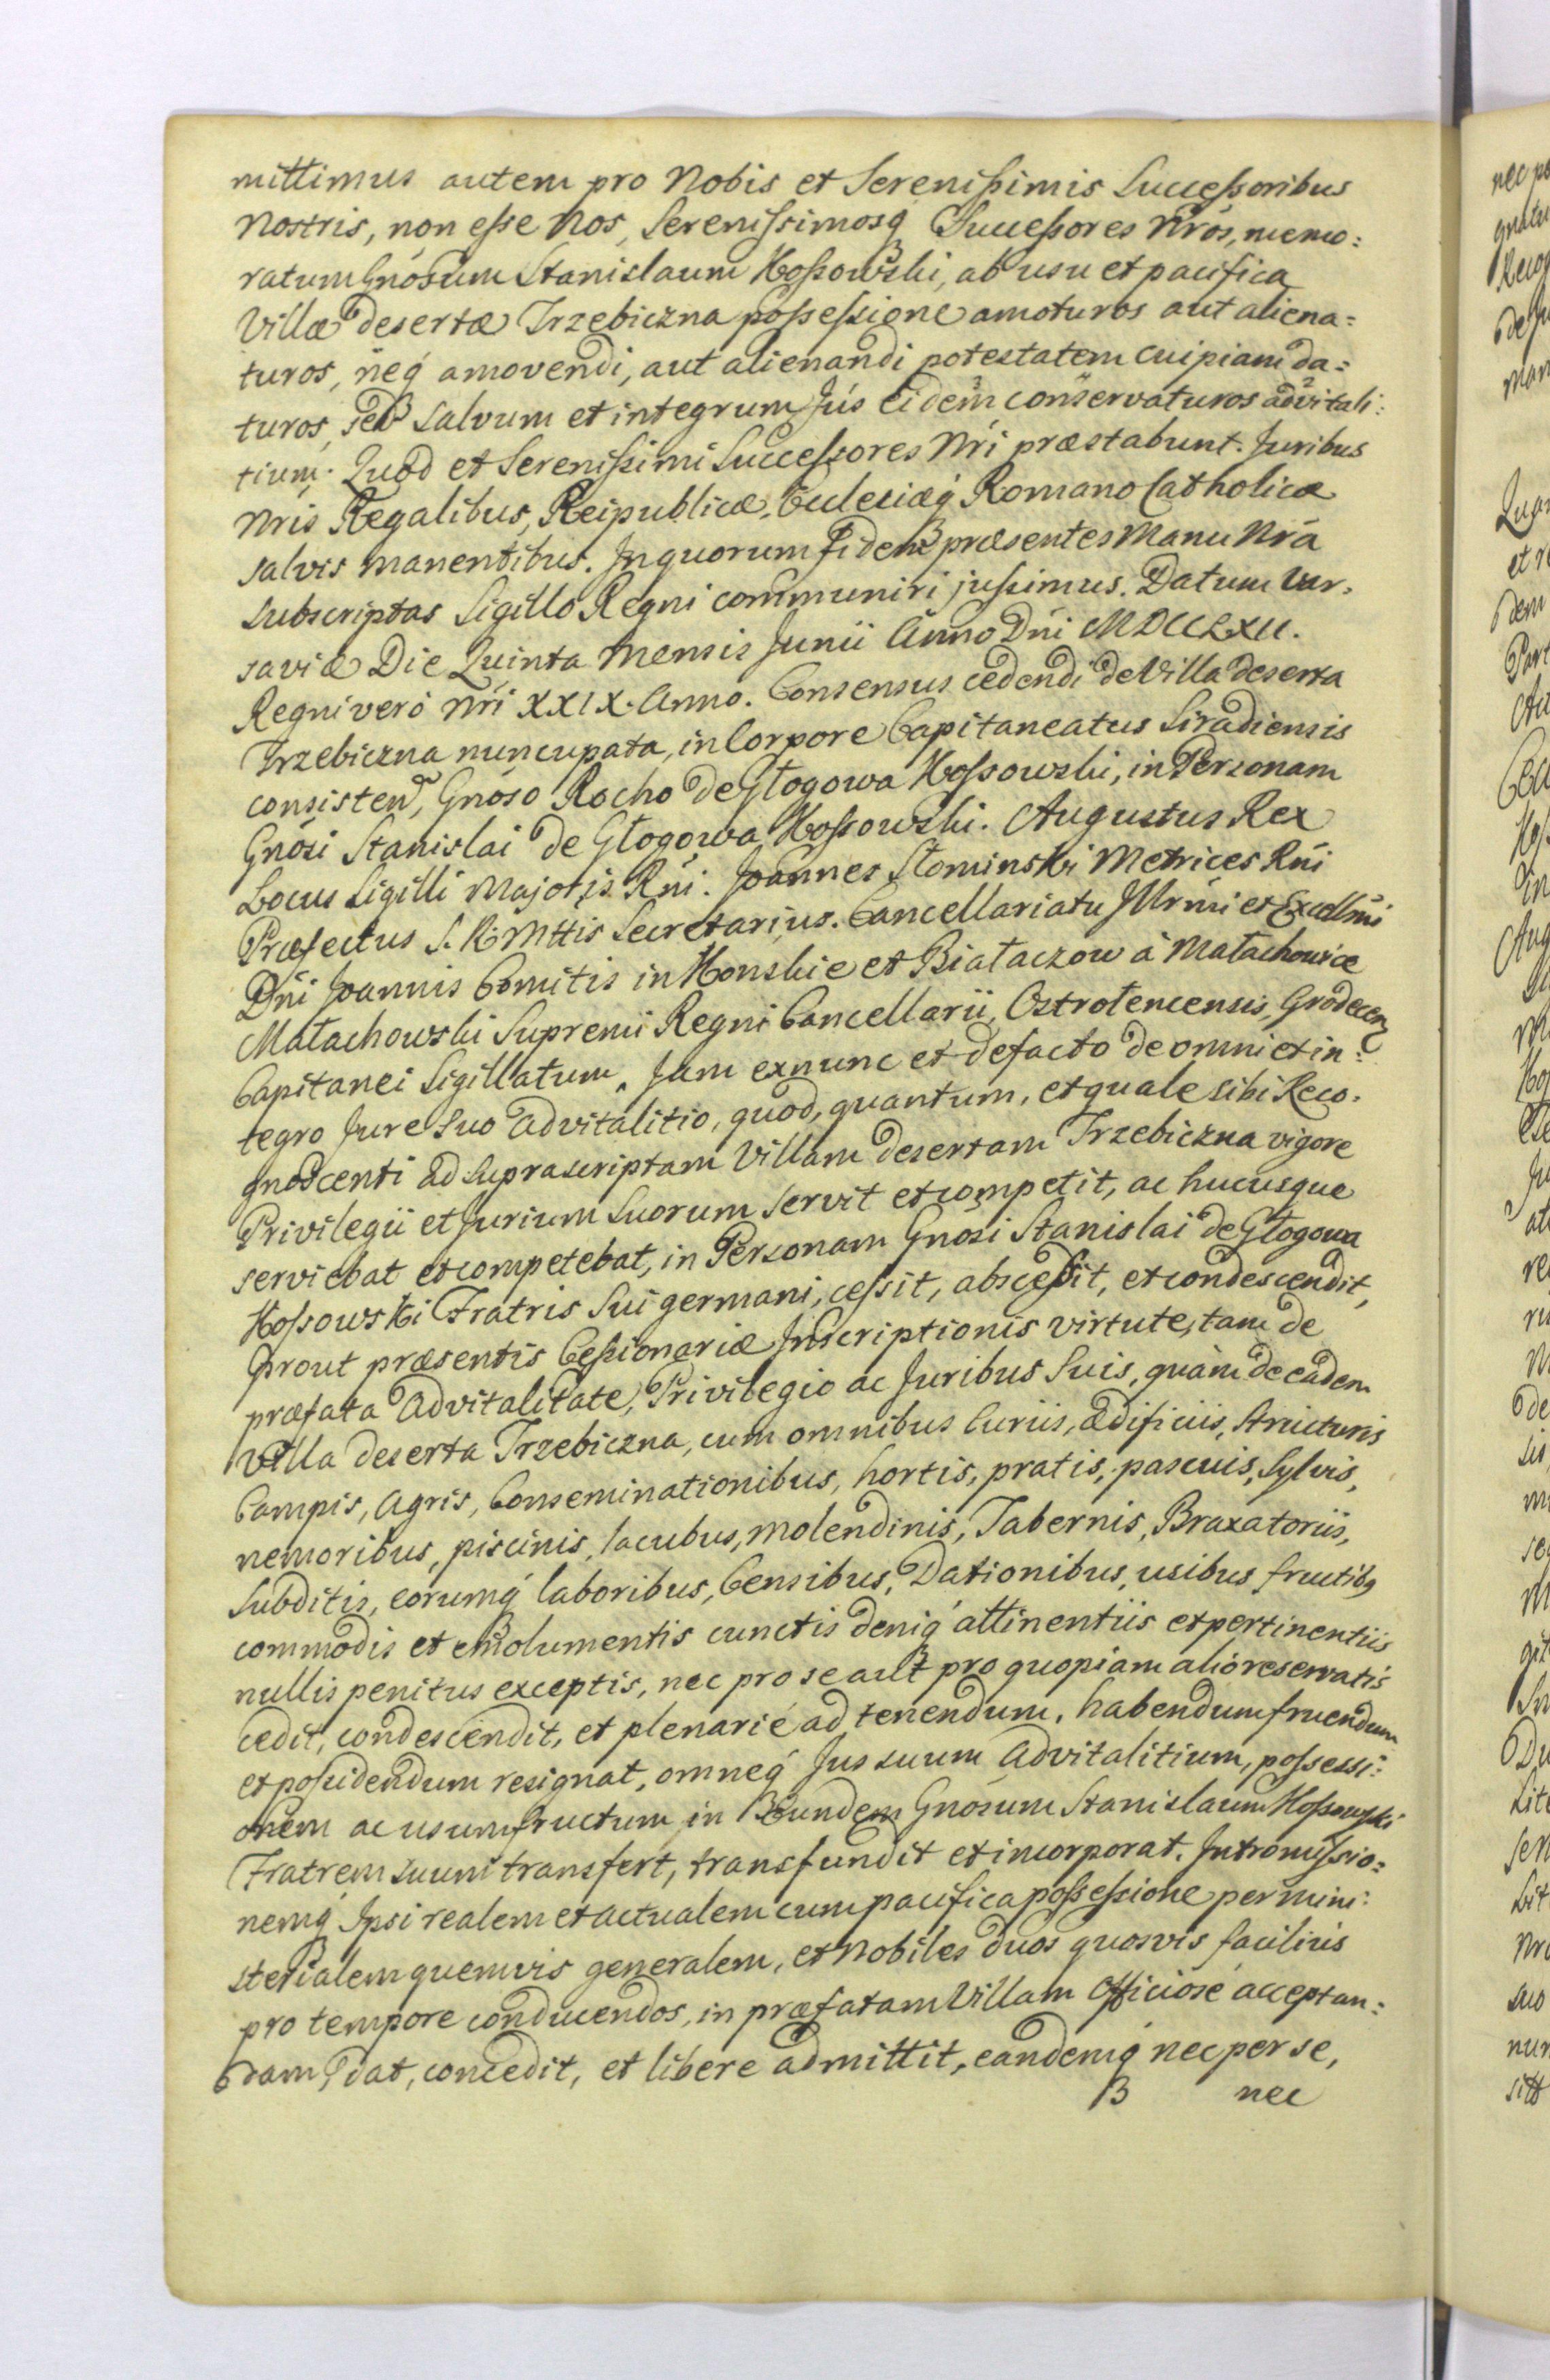 mittimus autem pro Nobis et Serenissimis Successoribus
Nostris, non esse Nos, Serenissimosq́ Successores Nros, memo:
ratum Gnosum Stanislaum Kossowski, ab usu et pacifica
Villæ desertæ Trzebiczna possessione amoturos aut aliena:
turos, neq́ amovendi, aut alienandi potestatem cuipiam da:
turos, sed salvum et integrum Jus Eidem conservaturos advitali:
tium. Quod et Serenissimi Successores Nri præstabunt. Juribus
Nris Regalibus, Reipublicæ, Ecclesiæq́ Romano Catholicæ
salvis manentibus. In quorum Fidem præsentes Manu Nra
subscriptas Sigillo Regni communiri jussimus. Datum Var:
saviæ Die Quinta Mensis Junii Anno Dni MDCCLXII.
Regni vero Nri XXIX. Anno. Consensus cedendi de Villa deserta
Trzebiczna nuncupata, in Corpore Capitaneatus Siradiensis
consisten, Gnoso Rocho de Głogowa Kossowski, in Personam
Gnosi Stanislai de Głogowa Kossowski. Augustus Rex
Locus Sigilli Majoris Rni. Joannes Słominski Metrices Rni
Præfectus S. R. Mttis Secretarius. Cancellariatu Illrmi et Excellmi
Dni Joannis Comitis in Konskie et Białaczow à Małachowice
Małachowski Supremi Regni Cancellarii, Ostrołencensis, Grodecen
Capitanei Sigillatum. Jam exnunc et defacto de omni et in:
tegro Jure suo advitalitio, quod, quantum, et quale sibi Reco:
gnoscenti ad suprascriptam Villam desertam Trzebiczna vigore
Privilegii et Jurium suorum servit et competit, ac hucusque
serviebat et competebat, in Personam Gnosi Stanislai de Głogowa
Kossowski Fratris Sui germani, cessit, abscessit, et condescendit,
prout præsentis Cessionariæ Inscriptionis virtute, tam de
præfata advitalitate, Privilegio ac Juribus Suis, quàm de eadem
Villa deserta Trzebiczna, cum omnibus Curiis, ædificiis, structuris
Campis, Agris, Conseminationibus, hortis, pratis, pascuis, Sylvis,
nemoribus, piscinis, lacubus, molendinis, Tabernis, Braxatoriis,
Subditis, eorumq́ laboribus, Censibus, Dationibus, usibus fructibq
commodis et emolumentis cunctis deniq́ attinentiis et pertinentiis
nullis penitus exceptis, nec pro se aut pro quopiam alio reservatis
cedit, condescendit, et plenarié ad tenendum, habendum fruendum
et possidendum resignat, omneq́ Jus suum Advitalitium, possessi:
onem ac usumfructum in Eundem Gnosum Stanislaum Kossowski
Fratrem suum transfert, transfundit et incorporat. Intromissio:
nemq́ Ipsi realem et actualem cum pacifica possessione per mini:
sterialem quemvis generalem, et Nobiles duos quosvis facilius
pro tempore conducendos, in præfatam Villam Officiosé acceptan:
dam, dat, concedit, et libere admittit, eandemq́ nec per se,
nec